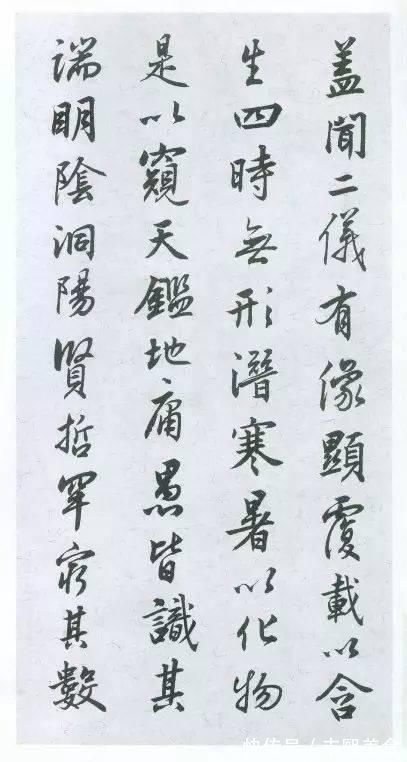 盖聞二儀有像顯覆載以含
生四時無形潛寒暑以化物
是以窺天鑑地庸愚皆識其
端明陰洞陽賢哲罕窮其數